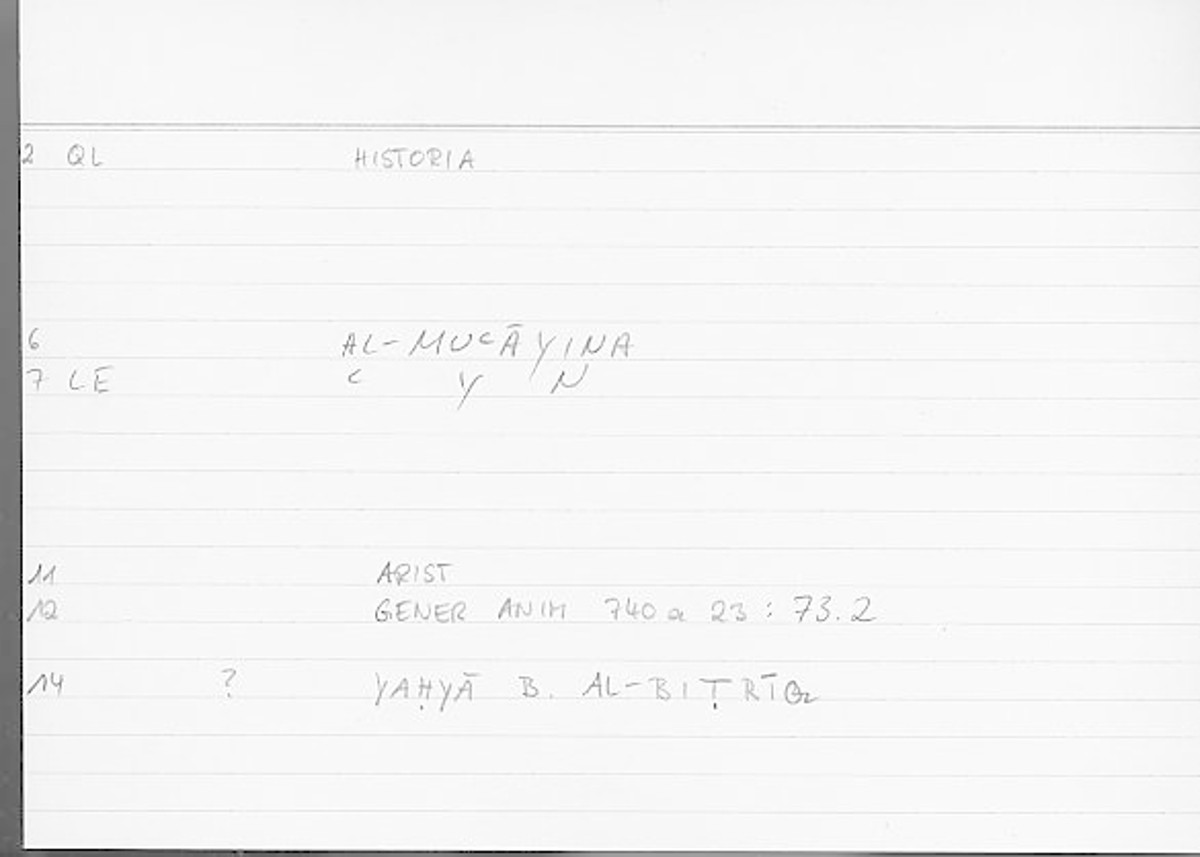 2 QL HISTORIA
6 AL-MUᶜĀYINA
7 LE ᶜ Y N
11 ARIST
12 GENER ANIM 740 a 23 : 73.2
14 ? YAḤYĀ B. AL-BIṬRĪQ